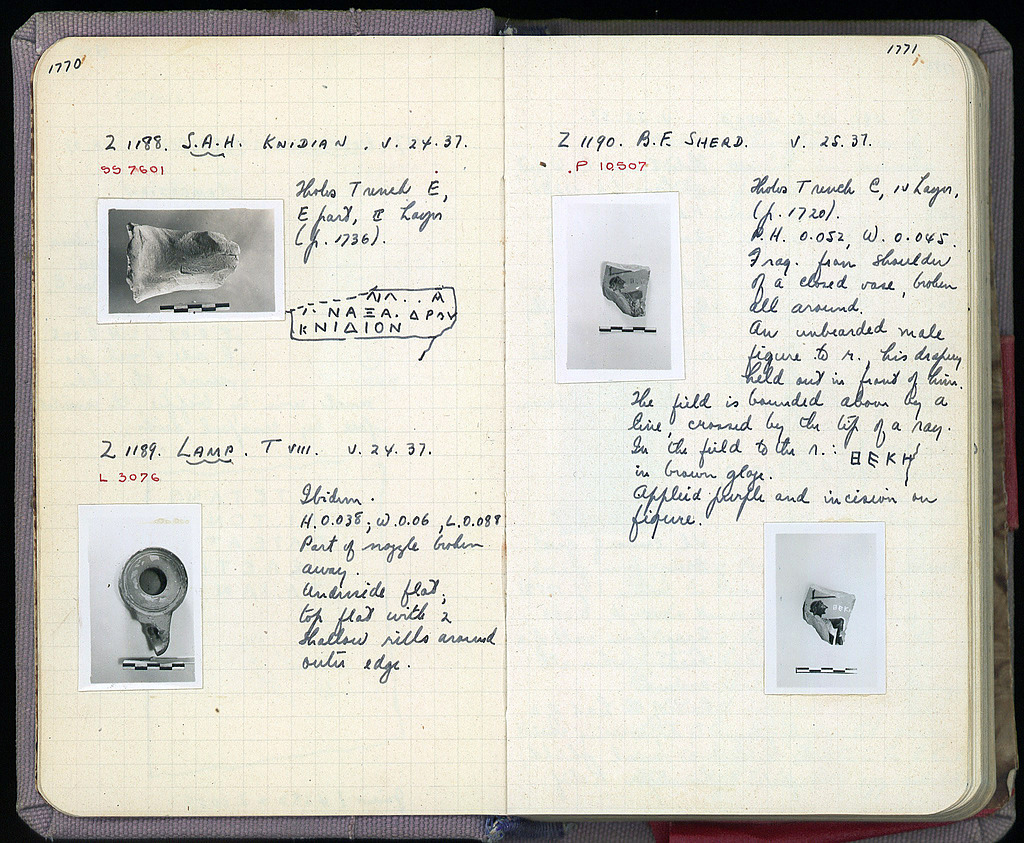 1770
Z 1188. S.A.H. KNIDIAN. V. 24. 37.
SS 7601
Tholos Trench E,
E part, II Layer
(p. 1736).
ΝΑΞΑ. ΔΡΟΥ
ΚΝΙΔΙΟΝ
Z 1189. LAMP. T VIII. V. 24. 37.
L 3076
Ibidem.
H. 0.038; W. 0.06, L. 0.088
Part of nozzle broken
away.
Underside flat;
top flat with 2
shallow rills around
outer edge.
1771
Z 1190. B.F. SHERD. V. 25. 37.
P 10507
Tholos Trench C, IV Layer,
(p. 1720).
P.H. 0.052, W. 0.045.
Frag. from shoulder
of a closed vase, broken
all around.
An unbearded male
figure to r., his drapery
held out in front of him.
The field is bounded above by a
line, crossed by the tip of a ray.
In the field to the r.: ΘΕΚΗ
in brown glaze.
Applied purple and incision on
figure.